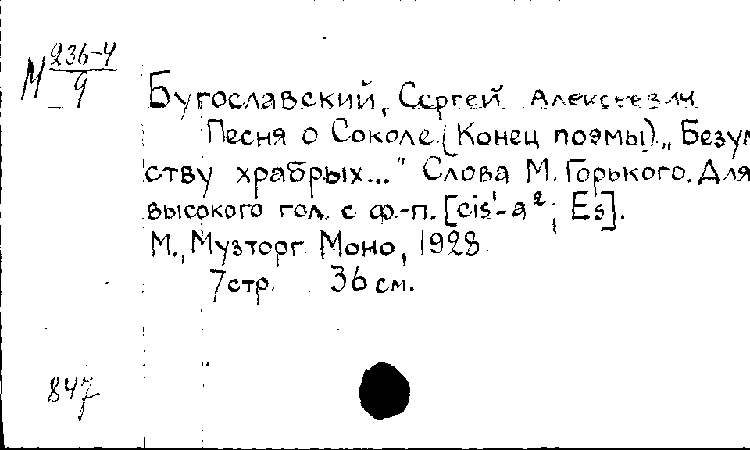 М 236-4
9
Бугославский, Сергей Алексеевич
Песня о Соколе (Конец поэмы) „Безум
ству храбрых..." Слова М. Горького. Для
высокого гол. с ф.-п. [cis¹-a²; Es].
М., Музторг Моно, 1928
7 стр. 36 см.
847